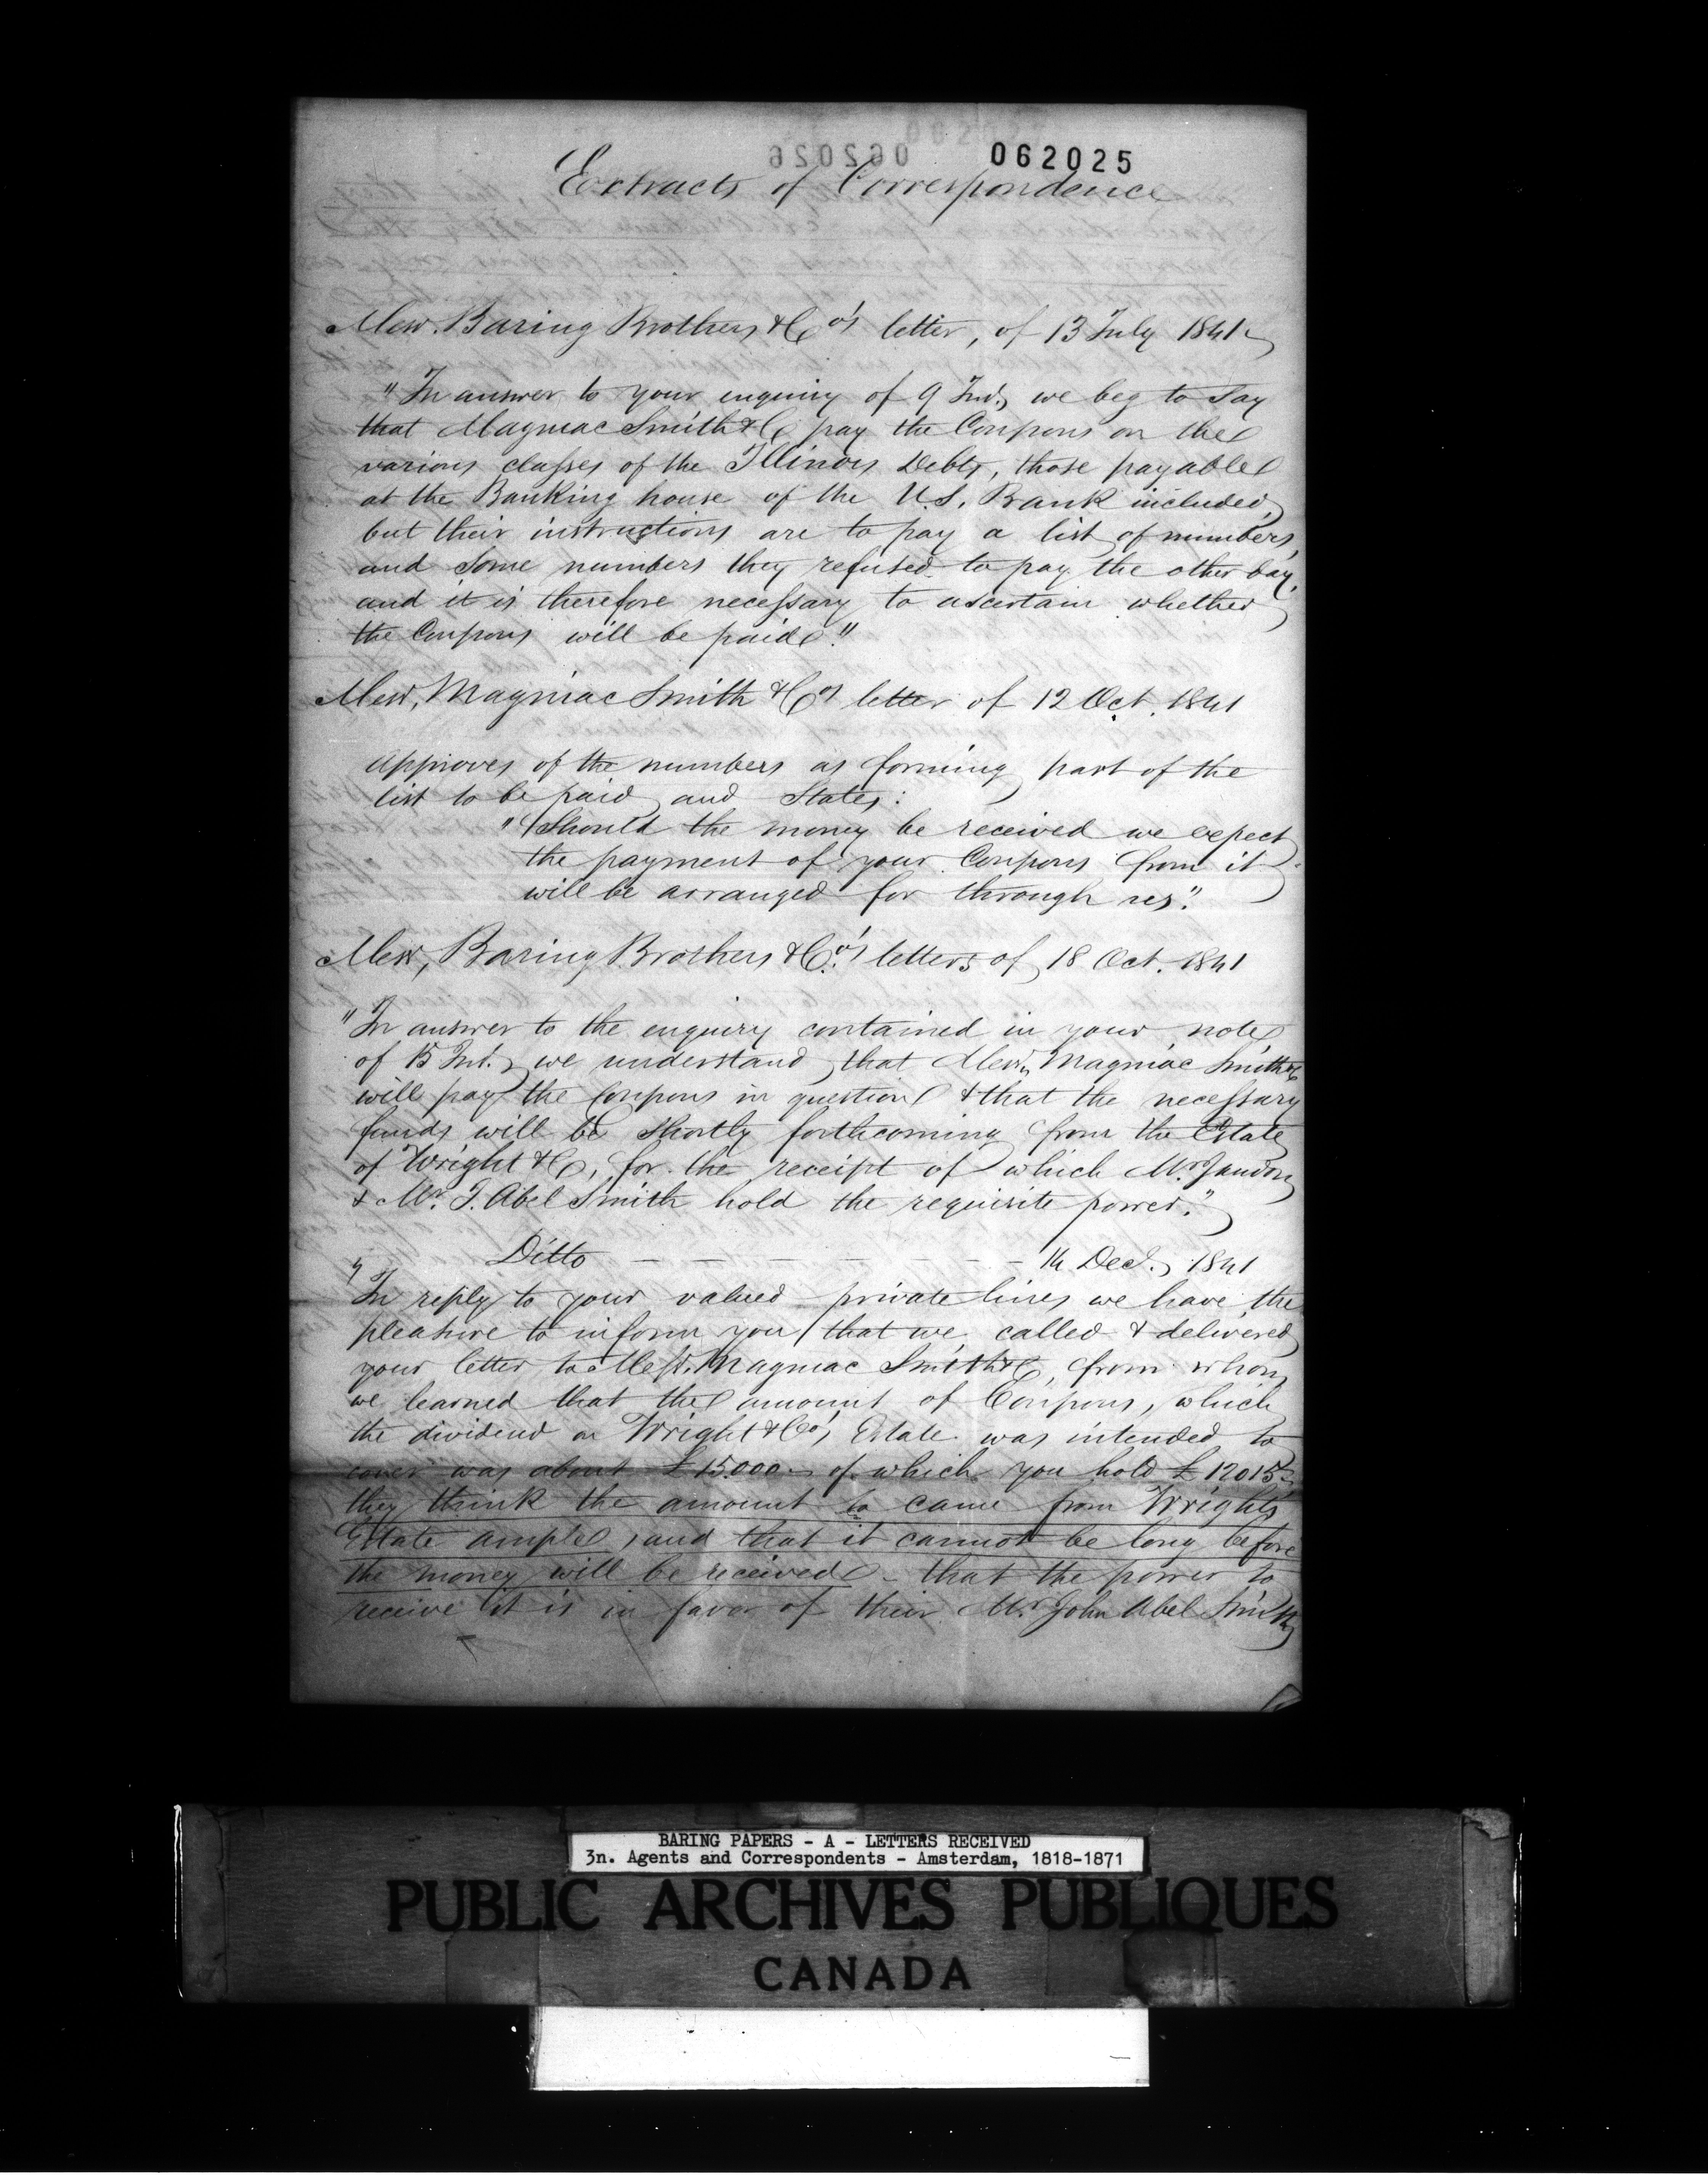 062025
Extracts of Correspondence
Mess. Baring Brothers & Co's letter, of 13 July 1841
"In answer to your enquiry of 9 Inst., we beg to say
that Magniac Smith & Co pay the Coupons on the
various classes of the Illinois Debts, those payable
at the Banking house of the U.S. Bank included,
but their instructions are to pay a list of numbers,
and some numbers they refused to pay the other day,
and it is therefore necessary to ascertain whether
the Coupons will be paid."
Mess. Magniac Smith & Co's letter of 12 Oct. 1841
approves of the numbers as forming part of the
list to be paid, and States:
"Should the money be received we expect
the payment of your Coupons from it
will be arranged for through us."
Mess, Baring Brothers & Co.'s letters of 18 Oct. 1841
"In answer to the enquiry contained in your note
of 15 Inst. we understand, that Mess. Magniac Smith & Co
will pay the Coupons in question & that the necessary
funds will be shortly forthcoming from the Estate
of Wright & Co, for the receipt of which Mr. Jaudon
& Mr. J. Abel Smith hold the requisite power."
Ditto — — — — — — — 14 Dec., 1841
"In reply to your valued private lines we have the
pleasure to inform you, that we called & delivered
your letter to Mess. Magniac Smith & Co, from whom
we learned that the amount of Coupons, which
the dividend on Wright & Co's Estate was intended to
cover was about £15.000.– of which you hold £12015–
they think the amount to come from Wright's
Estate ample, and that it cannot be long before
the money will be received – that the power to
receive it is in favor of their Mr. John Abel Smith
BARING PAPERS - A - LETTERS RECEIVED
3n. Agents and Correspondents - Amsterdam, 1818-1871
PUBLIC ARCHIVES PUBLIQUES
CANADA